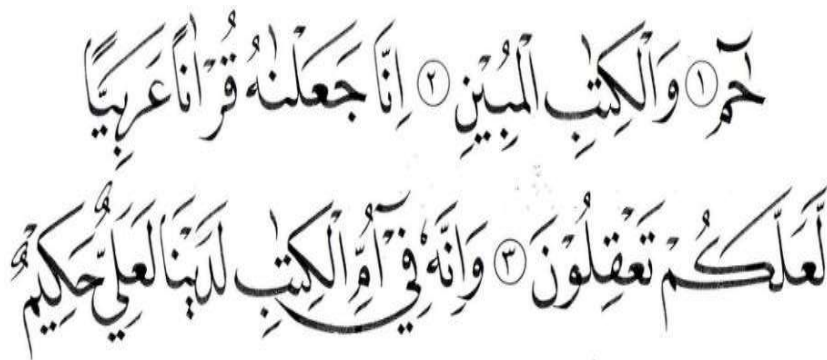 حٰمٓ ① وَالْكِتٰبِ الْمُبِيْنِ ② اِنَّا جَعَلْنٰهُ قُرْاٰنًا عَرَبِيًّا
لَّعَلَّكُمْ تَعْقِلُوْنَ ③ وَاِنَّهٗ فِيْٓ اُمِّ الْكِتٰبِ لَدَيْنَا لَعَلِيٌّ حَكِيْمٌ